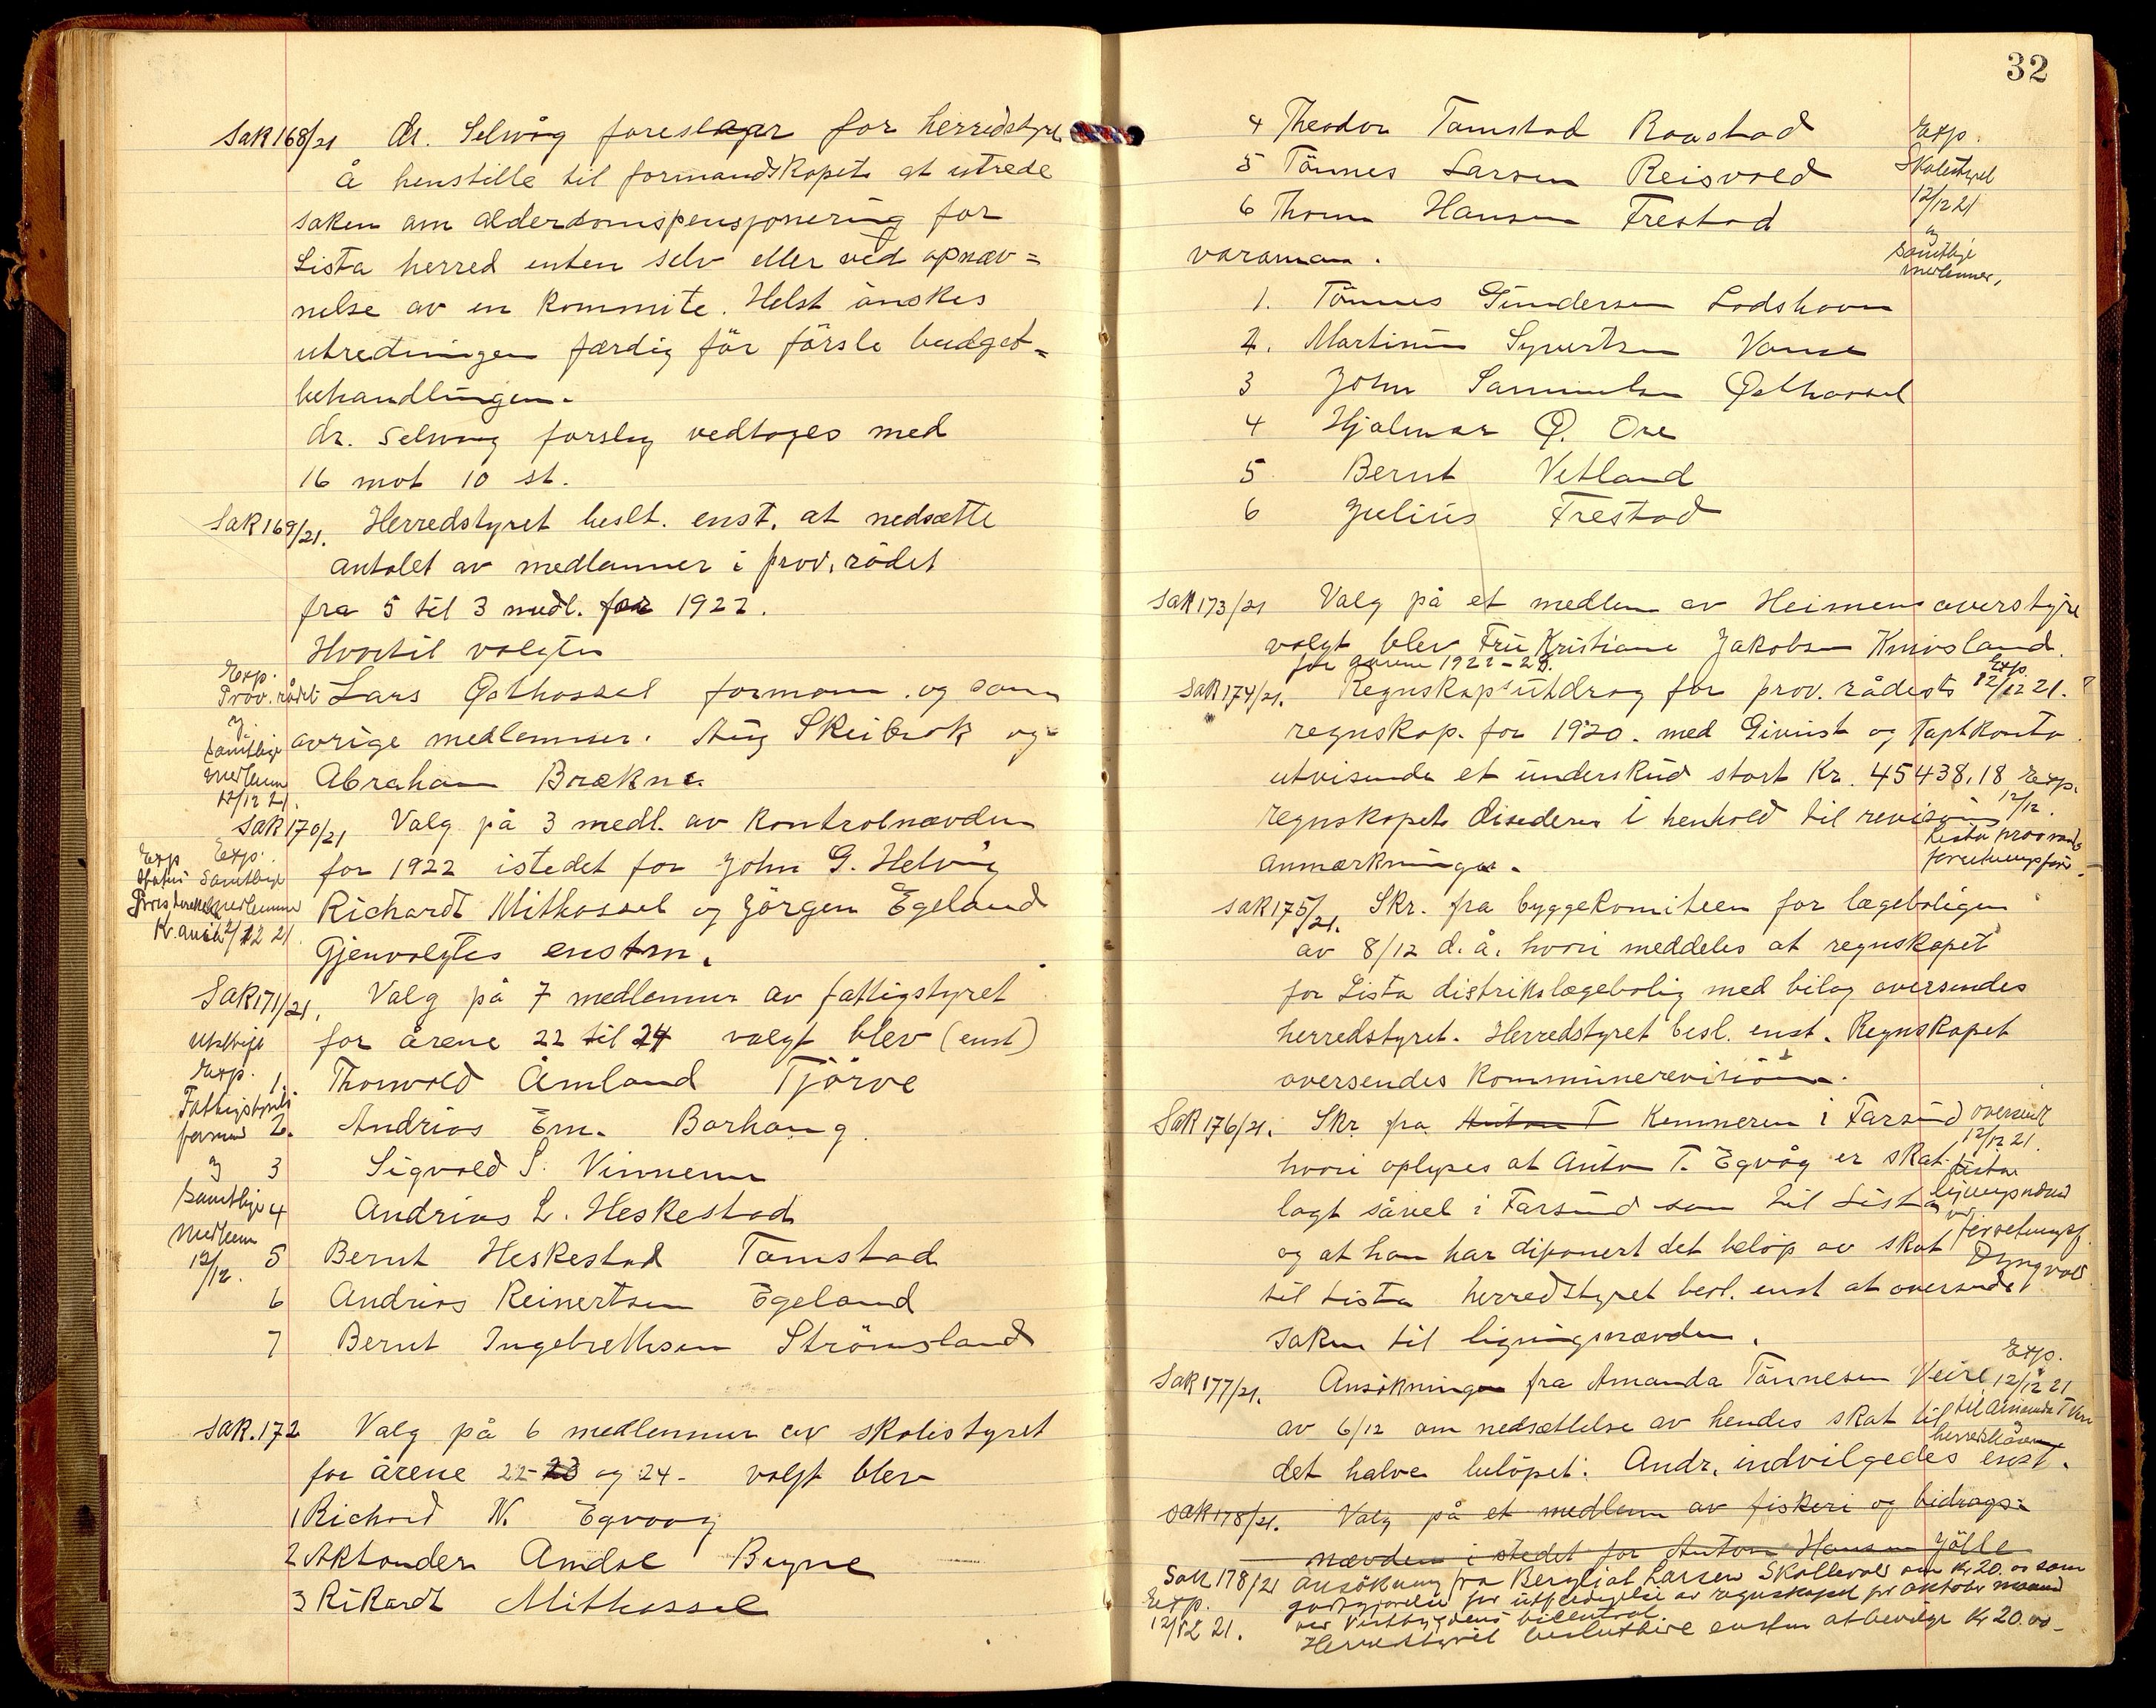 Sak 168/21 dr. Selvåg foreslaar for herredstyre
å henstille til formandskapet at utrede
saken om alderdomspensjonering for
Lista herred enten selv eller ved opnæv=
nelse av en kommite. Helst önskes
utredningen færdig för förste budget=
behandlingen.
dr. Selvaag forslag vedtages med
16 mot 10 st.
Sak 169/21. Herredstyret beslt. enst. at nedsætte
antalet av medlemmer i prov. rådet
fra 5 til 3 medl. for 1922.
Hvortil valgtes
Exp. Prov. rådet og samtlige medlem 12/12 21.
Lars Østhassel formann. og som
øvrige medlemmer. Aug Skeibrok og
Abraham Brækne.
Sak 170/21 Valg på 3 medl. av kontrolnævden
Exp. samtlige medlemmer 2/12 21.
for 1922 istedet for John G. Helvig
Richardt Mithassel og Jörgen Egeland
Gjenvalgtes enstm.
Sak 171/21. Valg på 7 medlemmer av fattigstyret
for årene 22 til 24 valgt blev (enst)
Exp. Fattigstyrets formand og samtlige medlem 12/12.
1. Thorvald Åmland Tjörve
2. Andrias Em. Borhaug
3 Sigvald S. Vinnem
4 Andrias L. Heskestad
5 Bernt Heskestad Tomstad
6 Andrias Reinertsen Egeland
7 Bernt Ingebrethsen Strömsland
Sak. 172 Valg på 6 medlemmer av skolestyret
for årene 22-23 og 24- valgt blev
1 Richard N. Egvaag
2 Aktander Amdal Bryne
3 Rikardt Mithassel
32
4 Theodor Tomstad Raastad
5 Tönnes Larsen Reisvold
6 Thom Hansen Frestad
Exp. Skolestyret 12/12 21 og samtlige medlemmer,
varaman.
1. Tönnes Gundersen Lodshavn
2. Martinus Syvertsen Vanse
3 John Samuelsen Østhassel
4 Hjalmar O. Ore
5 Bernt Vetland
6 Julius Frestad
Sak 173/21 Valg på et medlem av Heimens overstyre
valgt blev Fru Kristiane Jakobsen Knivsland.
for årene 1922-25.
Exp. 12/12 21.
Sak 174/21. Regnskapsutdrag for prov. rådets
regnskap. for 1920. med Givinst og Tapt konto
utvisende et underskud stort Kr. 45438,18 Exp. 12/12.
regnskapet disederes i henhold til revisions
anmærkninger.
Lista provraads forretningsförer.
Sak 175/21. Skr. fra byggekomiteen for lægeboligen
av 8/12 d. å. hvori meddeles at regnskapet
for Lista distrikslægebolig med bilag oversendes
herredstyret. Herredstyret besl. enst. Regnskapet
oversendes kommunerevisionen.
Sak 176/21. Skr fra Anton T Kemneren i Farsund
hvori oplyses at Anton T. Egvåg er skat-
lagt såvel i Farsund som til Lista
og at han har diponert det belöp av skat
til Lista herredstyret besl. enst at oversende
saken til ligningsnævden.
oversendt 12/12 21. Lista ligningsnævnd v/ forretningsf. Dyngvold.
Sak 177/21. Ansökningen fra Amanda Tönnesen Veire
av 6/12 om nedsættelse av hendes skat til
det halve belöpet. Andr. indvilgedes enst.
Exp. 12/12 21 til Amanda T Veire herredskassen
Sak 178/21. Valg på et medlem av fiskeri og bidrags-
nævden i stedet for Anton Hansen Jölle
Sak 178/21 Ansökning fra Bergljot Larsen Skollevold om kr 20.oo som
godtgjørelse for utfærdigelse av regnskapet for oktober maaned
ved Vestbygdens bilcentral.
Exp. 12/12 21.
Herredstyret besluttede enstm at bevilge Kr 20.oo-